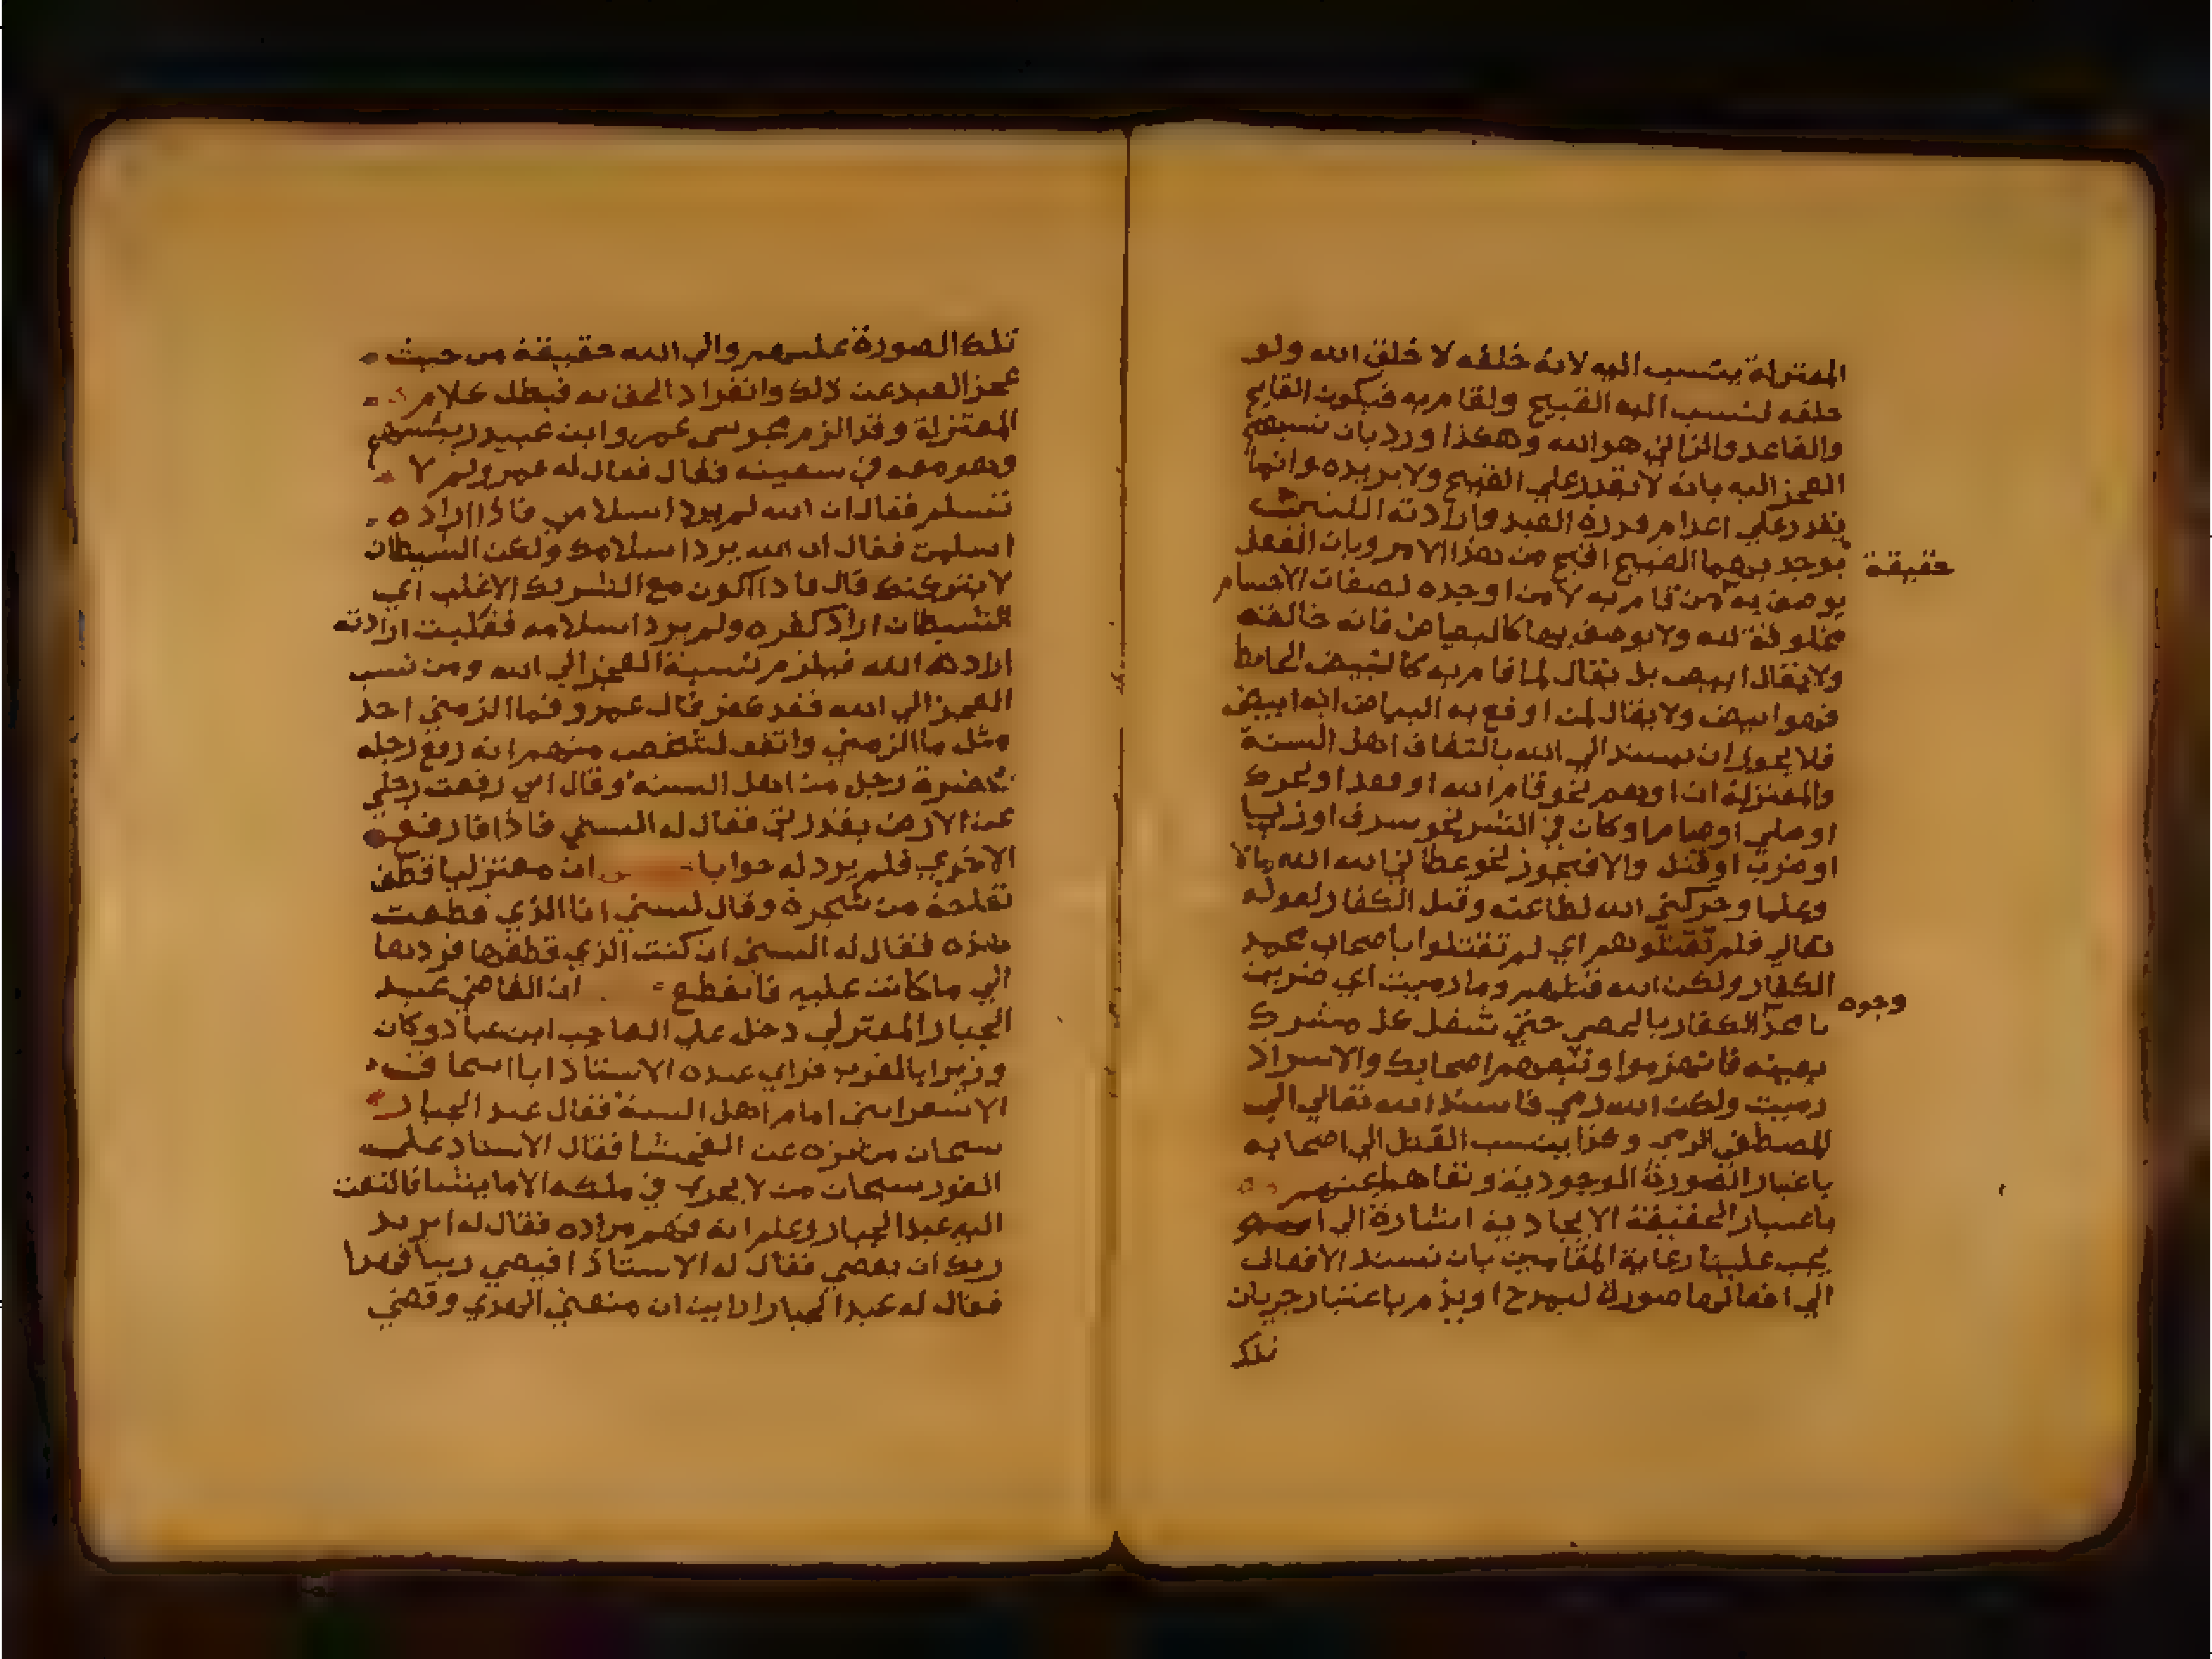 المعتزلة ينسب اليه لانه خلقه لا خلق الله ولو
خلقه لنسب اليه القبيح ولقام به فيكون القايم
والقاعد والزاني هو الله وهكذا ورد بان نسبهم
العجز اليه بانه لا يقدر علي القبيح ولا يريده وانما
يقدر علي اعدام قدرة العبد وارادته اللتين
يوجد بهما القبيح اقبح من هذا الامر وبان الفعل
حقيقة
يوصف به من قام به لا من اوجده لصفات الاجسام
مخلوقة لله ولا يوصف بها كالبياض فانه خالقه
ولا يقال ابيض بل يقال لما قام به كالبيض الحايط
فهو ابيض ولا يقال لمن اوقع به البياض انه ابيض
فلا يجوز ان يسند الي الله باتفاق اهل السنة
والمعتزلة ان اوهم نحو قام الله او قعد او تحرك
او صلي او صام او كان في الشر نحو سرق او زني
او ضرب او قتل والا فيجوز نحو عطاني الله مالا
وعلما وحركني الله لطاعته وقتل الكفار لقوله
تعالي فلم تقتلوهم اي لم تقتلوا يا صحاب محمد
الكفار ولكن الله قتلهم وما رميت اي ضربت
وجوه
يا محمد الكفار بالحصي حتي شغل كل مشرك
بعينه فانهزموا وتبعهم اصحابك والاسراد
رميت ولكن الله رمي فاسند الله تعالي الي
المصطفي الرمي وكذا ينسب القتل الي اصحابه
باعتبار الصورة الوجودية ونفاهما عنهم
باعتبار الحقيقة الايجادية اشارة الي انه
يجب علينا رعاية المقامين بان نسند الافعال
الي افعالها صورة ليمدح او يذم باعتبار جريان
تلك
تلك الصورة عليهم والي الله حقيقة من حيث
عجز العبد عن ذلك وانفراد الحق به فبطل كلام
المعتزلة وقد الزم مجوسي عمرو ابن عبيد رييسهم
وهو معه في سفينه فقال فقال له عمرو لم لا
تسلم فقال ان الله لم يرد اسلامي فاذا اراده
اسلمت فقال ان الله يرد اسلامك ولكن الشيطان
لا يتركك قال فاذا اكون مع الشريك الاغلب اي
الشيطان اراد كفره ولم يرد اسلامه فغلبت ارادته
ارادة الله فيلزم نسبة العجز الي الله ومن نسب
العجز الي الله فقد كفر قال عمرو فما الزمني احد
مثل ما الزمني واتفق لشخص منهم انه رفع رجله
بحضرة رجل من اهل السنة وقال اني رفعت رجلي
عن الارض بقدرتي فقال له السني فاذا فارفع
الاخري فلم يرد له جوابا ان معتزليا قطف
تفاحة من شجرة وقال لسني انا الذي قطعت
هذه فقال له السني ان كنت الذي قطفها فردها
الي ما كانت عليه فانقطع ان القاضي عبد
الجبار المعتزلي دخل علي الصاحب ابن عباد وكان
وزيرا بالمغرب فراي عنده الاستاذ ابا اسحاق
الاسفرايني امام اهل السنة فقال عبد الجبار
سبحان من تنزه عن الفحشا فقال الاستاذ علي
الفور سبحان من لا يجري في ملكه الا ما يشا فالتفت
اليه عبد الجبار وعلم انه فهم مراده فقال له ايريد
ربك ان يعصي فقال له الاستاذ افيعصي ربنا قهرا
فقال له عبد الجبار ارايت ان منعني الهدي وقضي